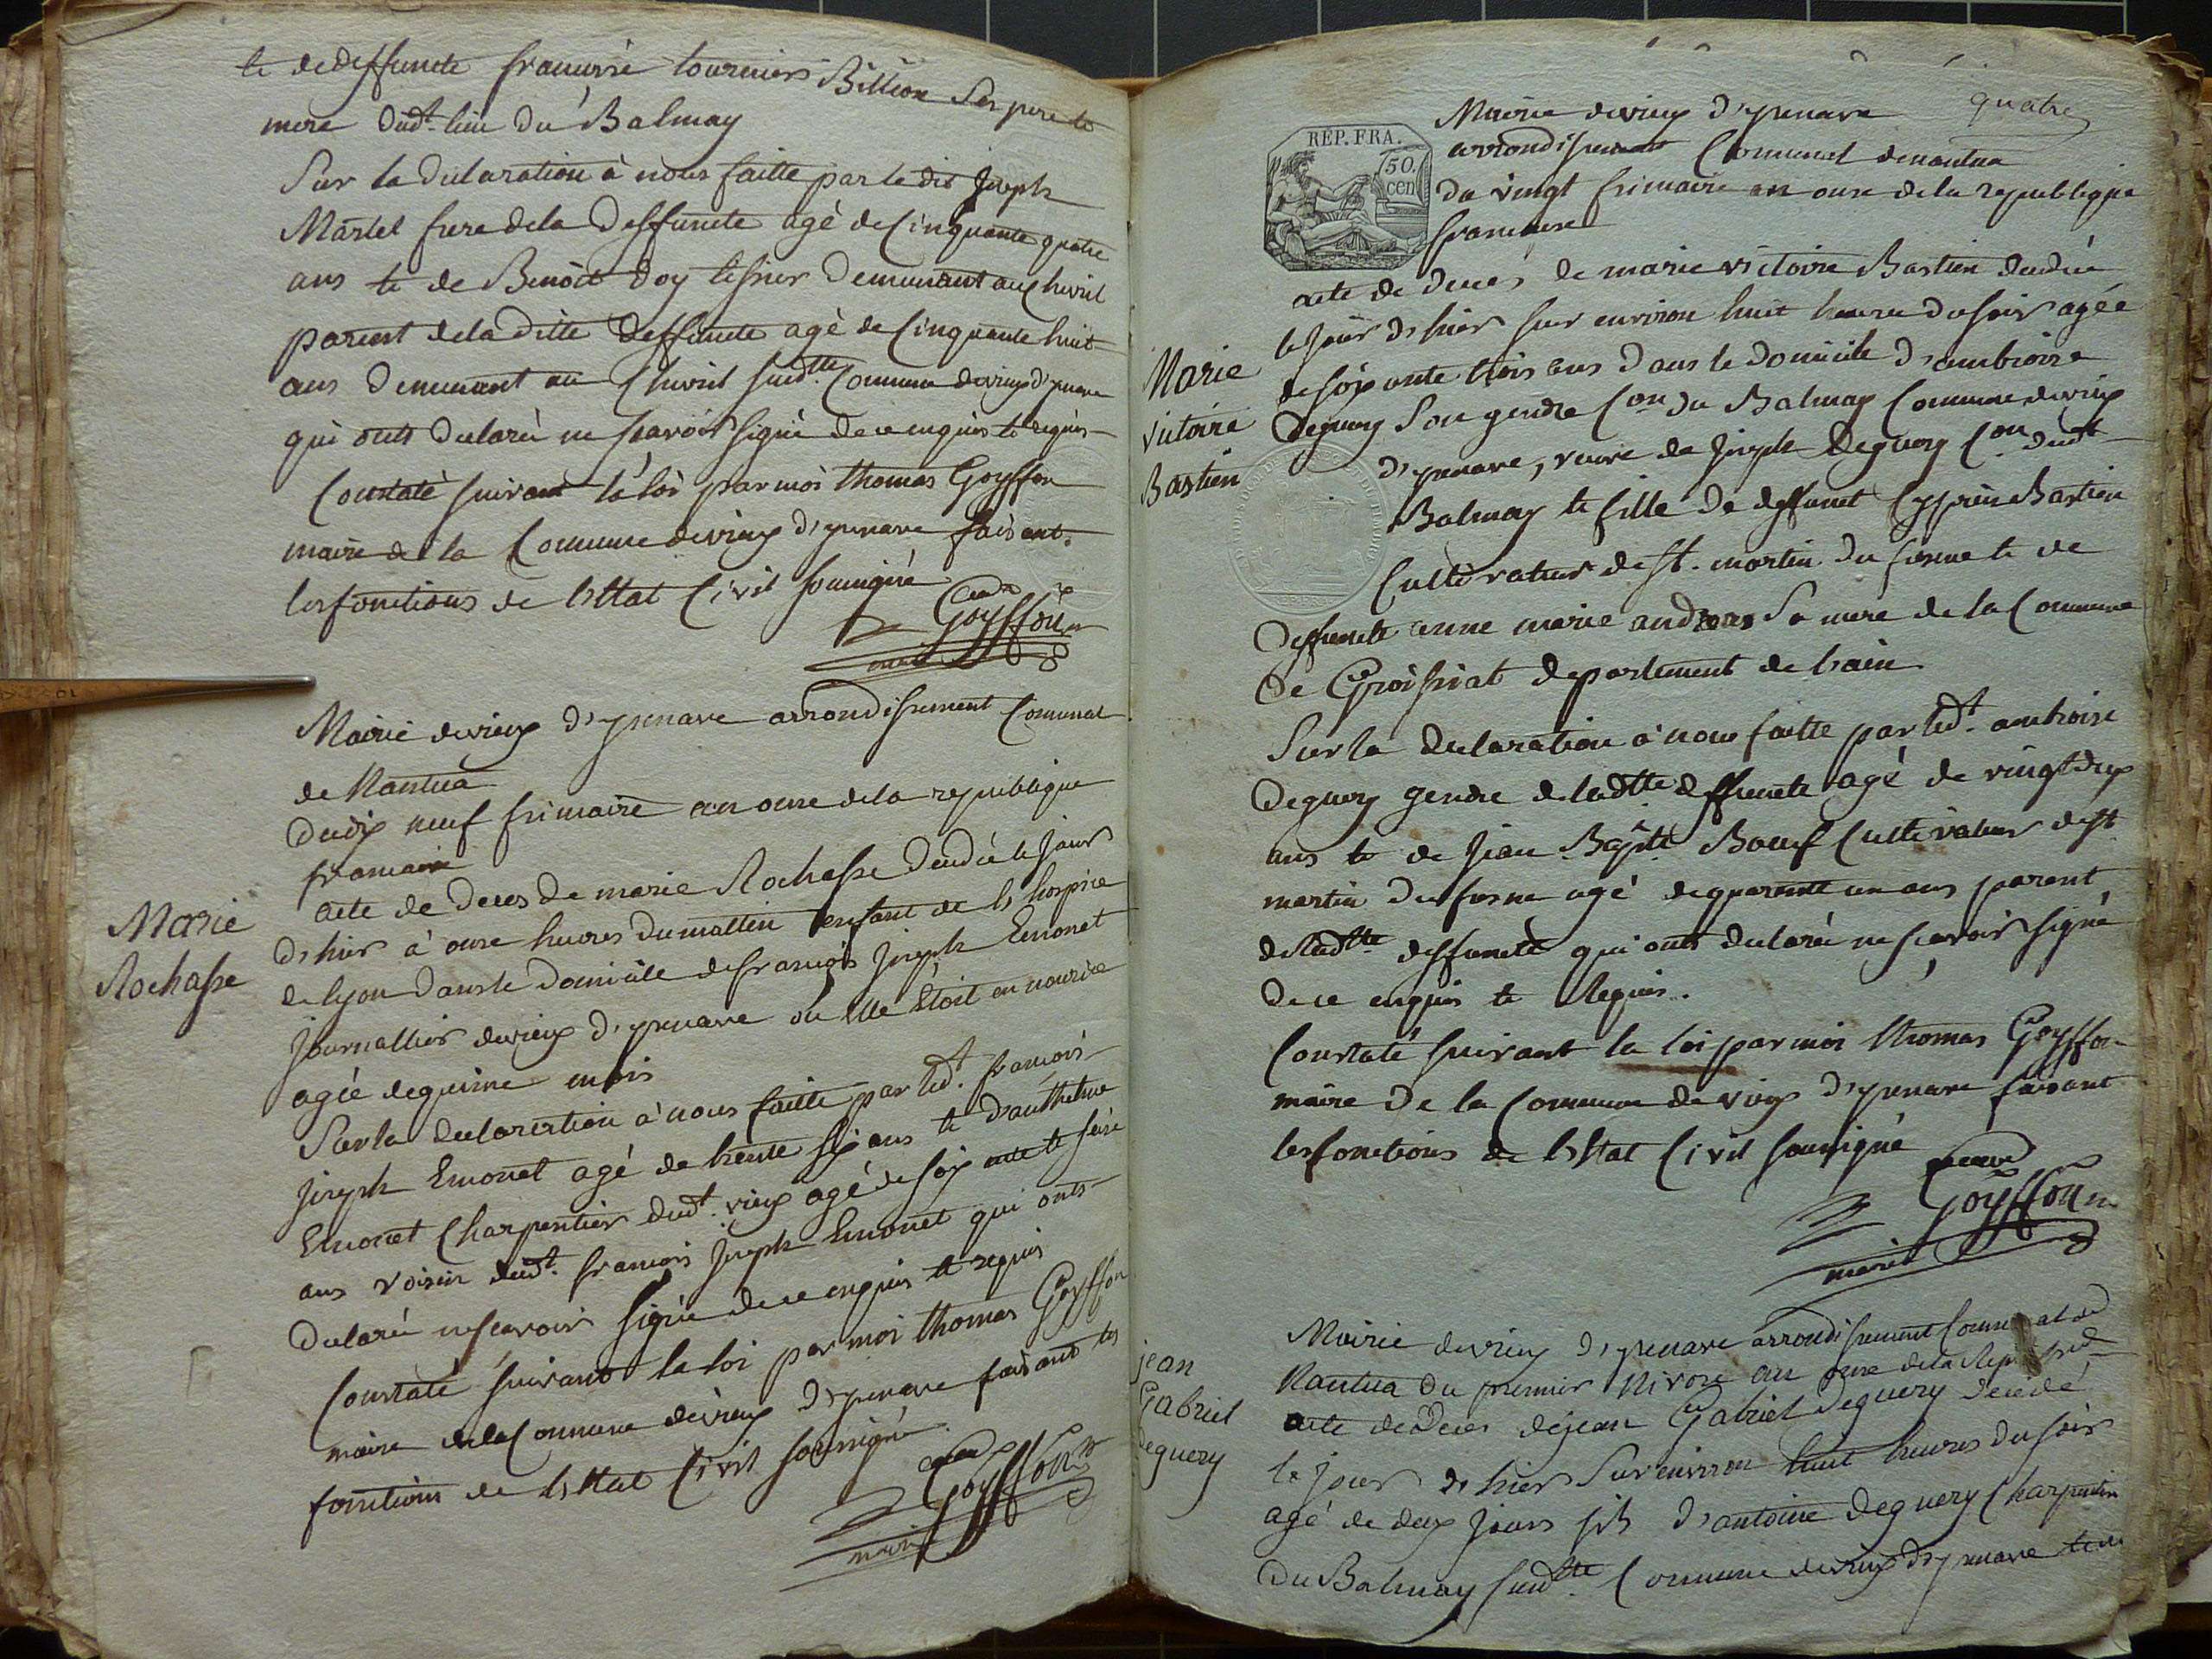 te de deffuncte francoise tournier Billion ses pere te
mere dudt. lieu du Balmay
Sur la declaration à nous faitte par le dit Joseph
Martel frere de la deffuncte agé de Cinquante quatre
ans te de Benoit Doy demeurant au Chevril
parent de la ditte deffuncte agé de Cinquante huit
ans demeurant au Chevril sudtte. Commune devieux d'yzenave
qui onts declaré ne scavoir signé de ce enquis te requis
Constaté suivant la loi par moi thomas Goyffon
maire de la Commune devieux d'yzenave faisant
les fonctions de l'Etat Civil soussigné
Goyffon
maire
Mairie devieux d'yzenave arrondissement Comunal
de Nantua
Du dix neuf frimaire an onze dela republique
francaise
Marie
Rochasse
acte de deces de marie Rochasse decedée le jour
d'hier à onze heures du mattin enfant de l'hospice
de lyon dans le domicile defrançois Joseph Emonet
Journallier devieux d'yzenave ou elle étoit en nourice
agée dequinze mois
Sur la declaration à nous faitte par ledt. francois
Joseph Emonet agé de trente six ans te d'anthelme
Emonet Charpentier dudt. vieux agé de soixante te seize
ans voisin dudt. francois Joseph Emonet qui onts
declaré ne scavoir signé de ce enquis te requis
Constaté suivant la loi par moi thomas Goyffon
maire dela Commune devieux d'yzenave faisant les
fonctions de l'Etat Civil soussigné
Goyffon
maire
quatre
RÉP. FRA.
50.
cen
Mairie devieux d'yzenave
arrondissement Comunal denantua
du vingt frimaire an onze dela republique
francaise
Marie
victoire
Bastien
acte de deces de marie victoire Bastien decedée
le jour d'hier sur environ huit heures du soir agée
de soixante trois ans dans le domicile d'ambroise
Deguery son gendre Con du Balmay Commune devieux
d'yzenave, veuve de Joseph Deguery Con dudt
Balmay te fille de deffunct Cyprien Bastien
Cultivateur de st. martin du fresne te de
deffuncte anne marie sa mere de la Commune
de Groissiat departement de l'ain
Sur la declaration à nous faitte par ledt. ambroise
Deguery gendre de ladtte deffuncte agé de vingt dix
ans te de Jean Bapte Boeuf Cultivateur de st
martin du fresne agé de quarente un ans parent
de ladtte deffuncte qui onts declaré ne scavoir signé
de ce enquis te Requis.
Constaté suivant la loi par moi thomas Goyffon
maire de la Commune de vieux d'yzenave faisant
les fonctions de l'Etat Civil soussigné
Goyffon
maire
jean
Gabriel
deguery
Mairie devieux d'yzenave arrondissement Comunal de
Nantua du premier Nivose an onze dela
acte de deces dejean Gabriel Deguery decedé
le jour d'hier sur environ huit heures du soir
agé de deux jours fils d'antoine Deguery Charpentier
du Balmay sudtte. Commune devieux d'yzenave te de